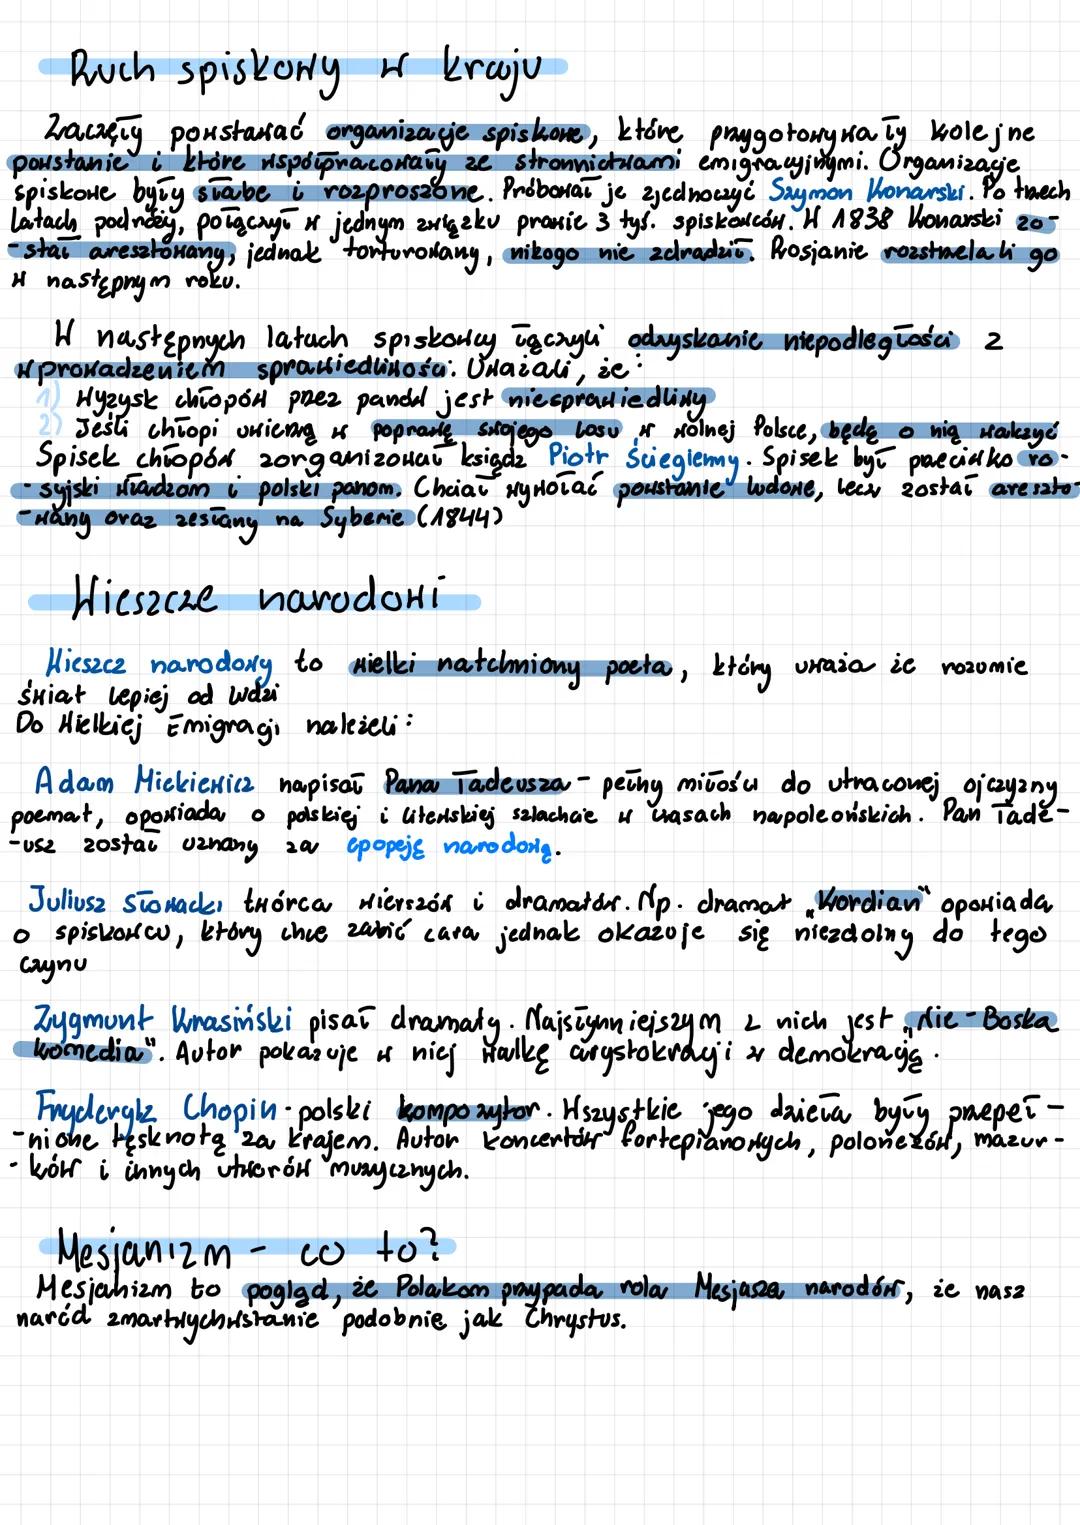 Ruch spiskowy w kraju
Zaczęły powstawać organizacje spiskowe, które przygotowywały kolejne
powstanie i które współpracowały ze stronnictwami emigracyjnymi. Organizacje
spiskowe były słabe i rozproszone. Próbował je zjednoczyć Szymon Konarski. Po trzech
latach podróży, połączył w jednym związku prawie 3 tyś. spiskowców. W 1838 Konarski zo-
-stał aresztowany, jednak torturowany, nikogo nie zdradził. Rosjanie rozstrzelali go
w następnym roku.
W następnych latach spiskowcy łączyli odzyskanie niepodległości z
wprowadzeniem sprawiedliwości. Uważali, że:
1) Wyzysk chłopów przez panów jest niesprawiedliwy
2) Jeśli chłopi uwierzą w poprawę swojego losu w wolnej Polsce, będę o nią walczyć
Spisek chłopów zorganizował ksiądz Piotr Ściegienny. Spisek był przeciwko ro-
-syjski władzom i polski panom. Chciał wywołać powstanie ludowe, lecz został areszto-
-wany oraz zesłany na Syberie (1844)
Wieszcze narodowi
Wieszcz narodowy to wielki natchniony poeta, który uważa że rozumie
świat lepiej od ludzi
Do Wielkiej Emigracji należeli:
Adam Mickiewicz napisał Pana Tadeusza - pełny miłości do utraconej ojczyzny
poemat, opowiada o polskiej i litewskiej szlachcie w czasach napoleońskich. Pan Tade-
-usz został uznany za epopeję narodową.
Juliusz Słowacki twórca wierszów i dramatów. Np. dramat „Kordian" opowiada
o spiskowcu, który chce zabić cara jednak okazuje się niezdolny do tego
czynu
Zygmunt Krasiński pisał dramaty. Najsłynniejszym z nich jest „Nie-Boska
komedia". Autor pokazuje w niej walkę arystokracji z demokracją.
Fryderyk Chopin - polski kompozytor. Wszystkie jego dzieła były przepeł-
-nione tęsknotą za krajem. Autor koncertów fortepianowych, polonezów, mazur-
-ków i innych utworów muzycznych.
Mesjanizm - co to?
Mesjanizm to pogląd, że Polakom przypada rola Mesjasza narodów, że nasz
naród zmartwychwstanie podobnie jak Chrystus.